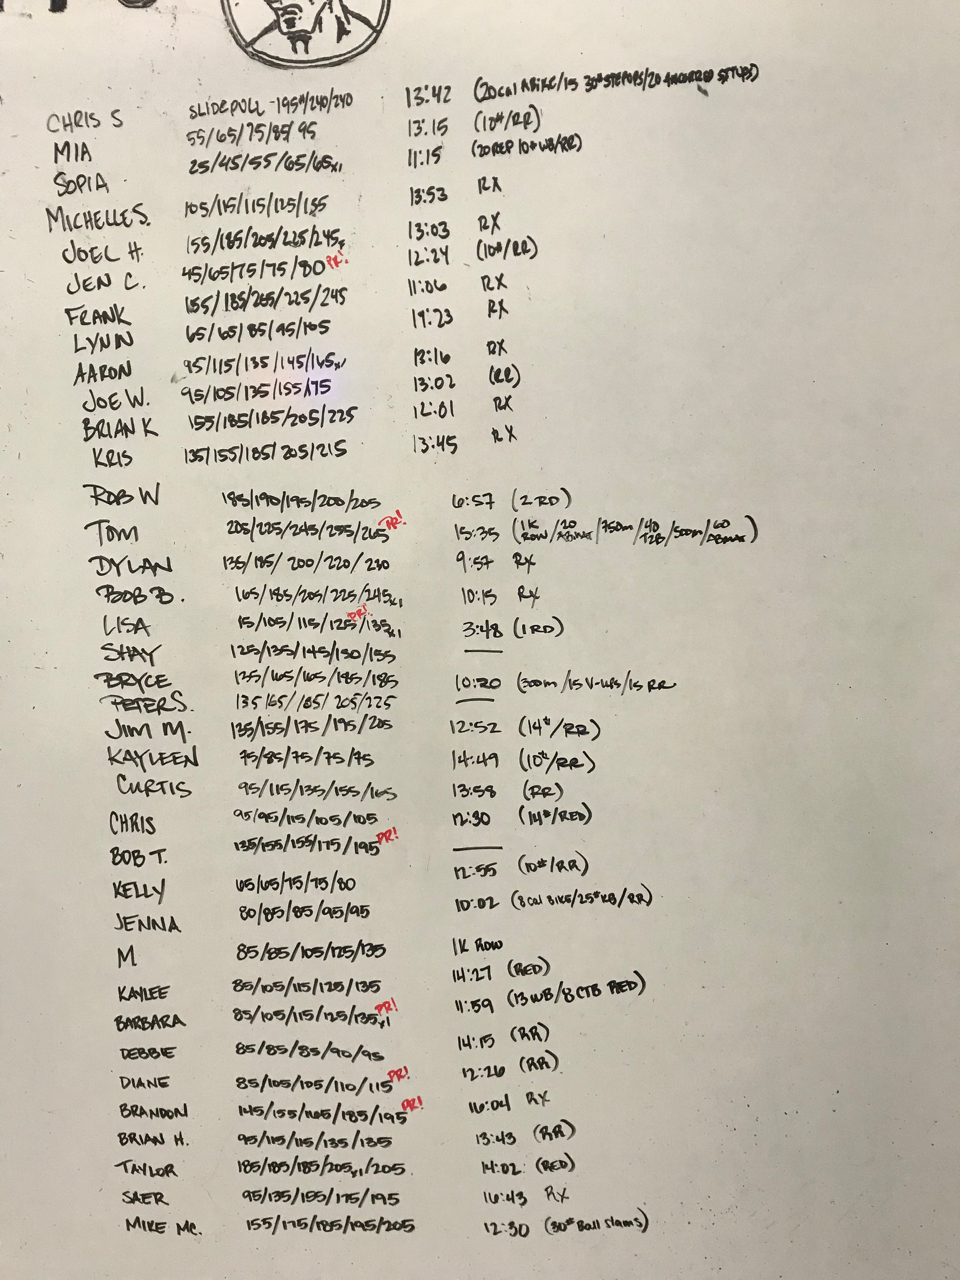 CHRIS S SLIDEPULL - 195#/240/240 13:42 (20 cal ABIKE/15 30# STEPUPS/20 ANCHORED SITUPS)
MIA 55/65/75/85/95 13:15 (10#/RR)
SOPIA 25/45/55/65/65x1 11:15 (20 REP 10# WB/RR)
MICHELLE S. 105/115/115/125/155 13:53 RX
JOEL H. 155/185/205/225/245x 13:03 RX
JEN C. 45/65/75/75/80 PR! 12:24 (10#/RR)
FRANK 155/185/205/225/245 11:06 RX
LYNN 65/65/85/95/105 19:23 RX
AARON 95/115/135/145/165x1 13:16 RX
JOE W. 95/105/135/155/175 13:02 (RR)
BRIAN K 155/185/185/205/225 12:01 RX
KRIS 135/155/185/205/215 13:45 RX
ROB W 185/190/195/200/205 6:57 (2 RD)
TOM 205/225/245/255/265 PR! 15:35 (1K ROW/20 ABMAT/750m/40 T2B/500m/60 ABMAT)
DYLAN 135/185/200/220/230 9:57 RX
BOB B. 165/185/205/225/245x1 10:15 RX
LISA 15/105/115/125 PR!/135x1 3:48 (1 RD)
SHAY 125/135/145/150/155 —
BRYCE 135/165/165/185/185 10:20 (300m/15 V-UPS/15 RR
PETER S. 135/165/185/205/225 —
JIM M. 135/155/175/195/205 12:52 (14#/RR)
KAYLEEN 75/85/75/75/75 14:49 (10#/RR)
CURTIS 95/115/135/155/165 13:58 (RR)
CHRIS 95/95/115/105/105 12:30 (14#/RED)
BOB T. 135/155/155/175/195 PR! —
KELLY 65/65/75/75/80 12:55 (10#/RR)
JENNA 80/85/85/95/95 10:02 (8 cal BIKE/25# KB/RR)
M 85/85/105/125/135 1K ROW
KAYLEE 85/105/115/125/135 14:27 (RED)
BARBARA 85/105/115/125/135x1 PR! 11:59 (13 WB/8 CTB RED)
DEBBIE 85/85/85/90/95 14:15 (RR)
DIANE 85/105/105/110/115 PR! 12:26 (RR)
BRANDON 145/155/165/185/195 PR! 16:04 RX
BRIAN H. 95/115/115/135/135 13:43 (RR)
TAYLOR 185/185/185/205x1/205 14:02 (RED)
SAER 95/135/155/175/195 16:43 RX
MIKE MC. 155/175/185/195/205 12:30 (30# Ball slams)